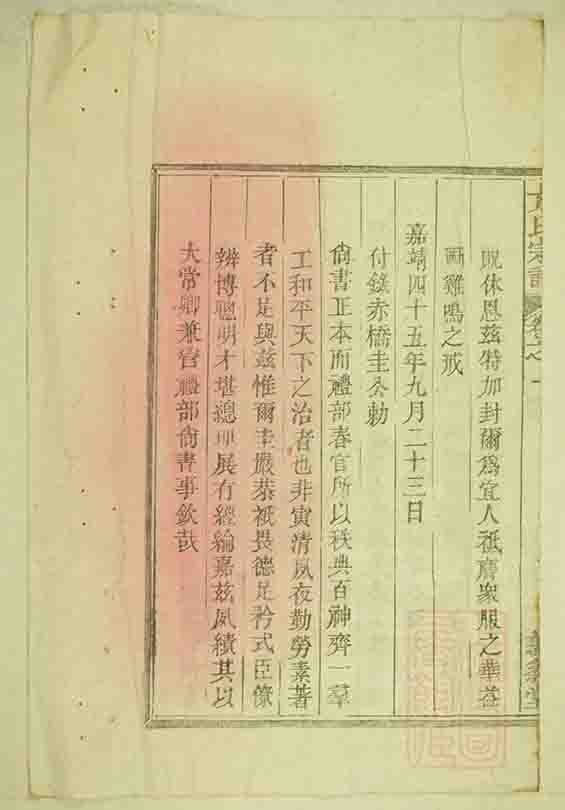 貺休恩茲特加封爾爲宜人祗膺衆服之華益
雞鳴之戒
嘉靖四十五年九月二十三日
付錄赤橋圭公勅
尙書正本而禮部春官所以秩典百神齊一羣
工和平天下之治者也非寅清夙夜勤勞素著
者不足與茲惟爾圭嚴恭祗畏德足矜式臣僚
辨博聰明才堪總理展有經綸嘉茲夙績其以
大常卿兼官禮部尙書事欽哉
氏宗譜